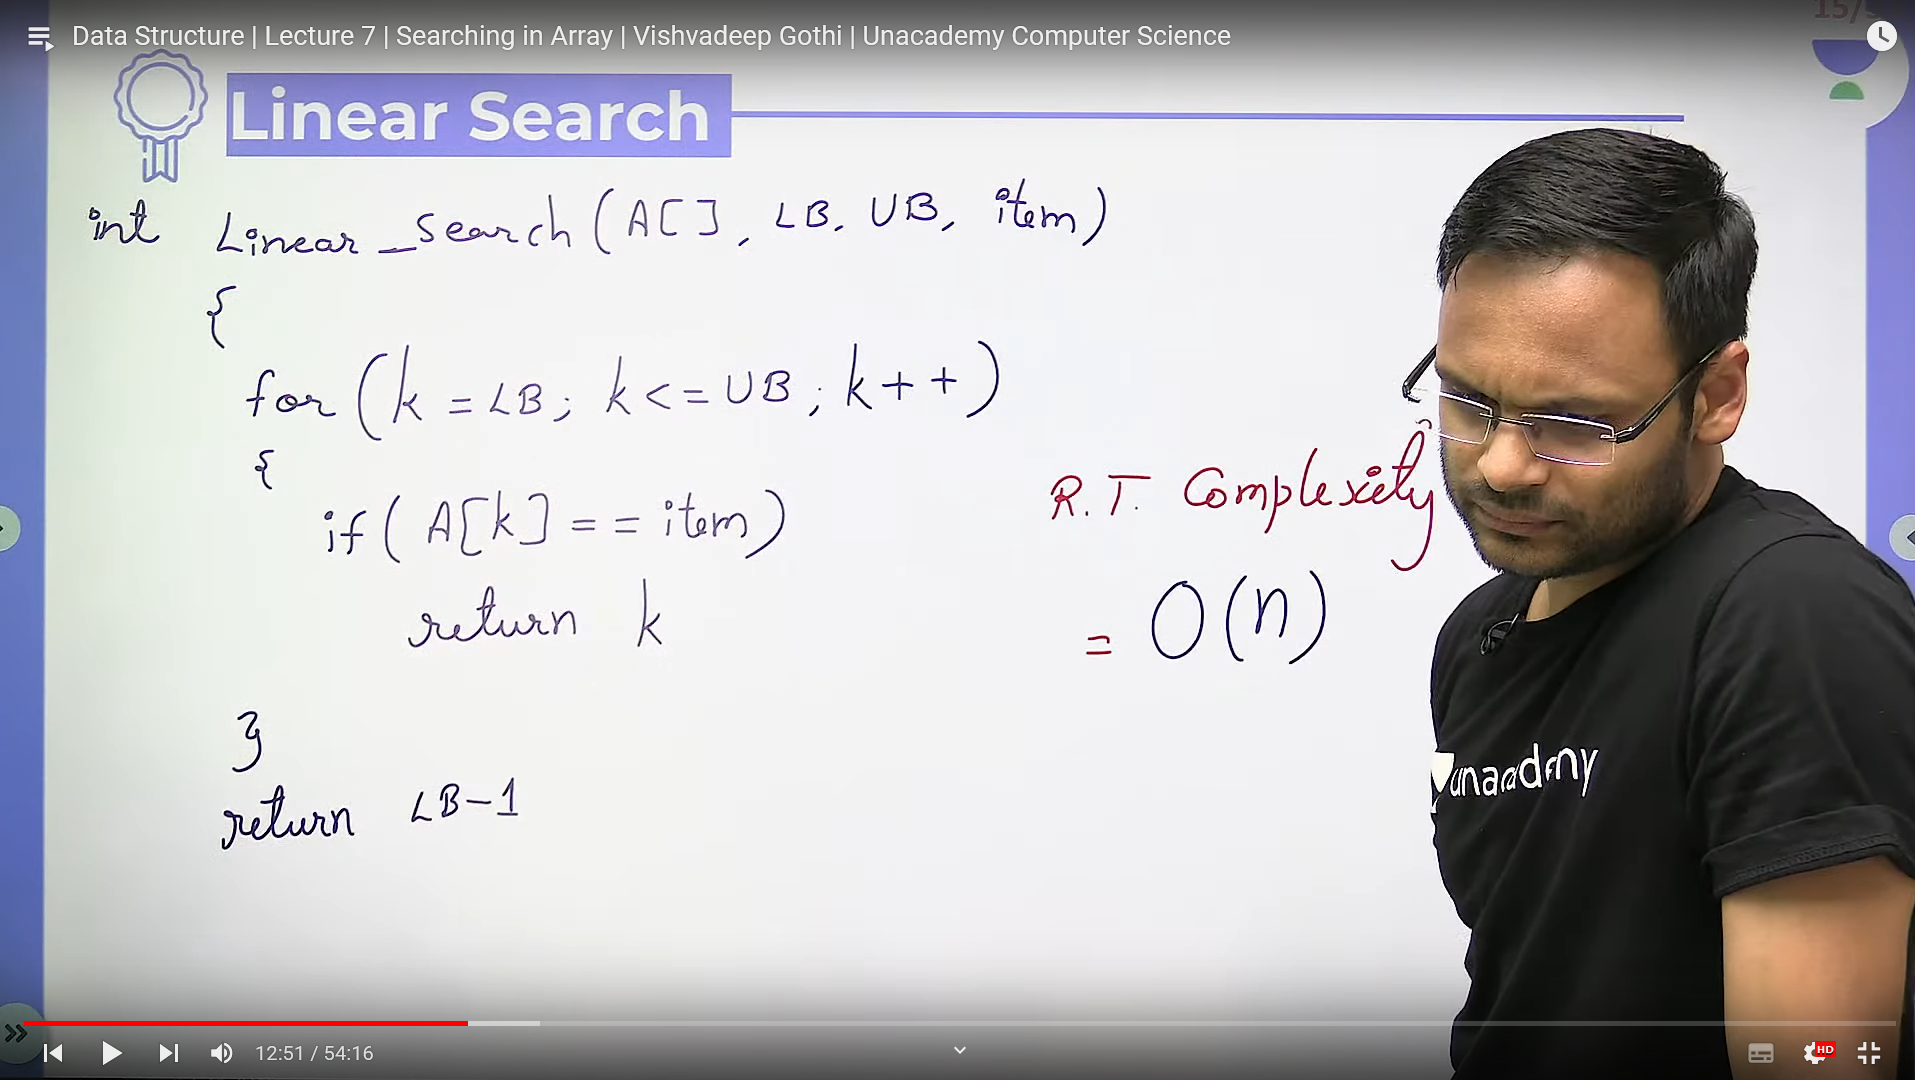 Data Structure | Lecture 7 | Searching in Array | Vishvadeep Gothi | Unacademy Computer Science
Linear Search
int Linear_Search(A[], LB, UB, item)
{
for (k = LB; k <= UB; k++)
{
if (A[k] == item)
return k
}
return LB-1
R.T. Complexity
= O(n)
unacademy
12:51 / 54:16
HD